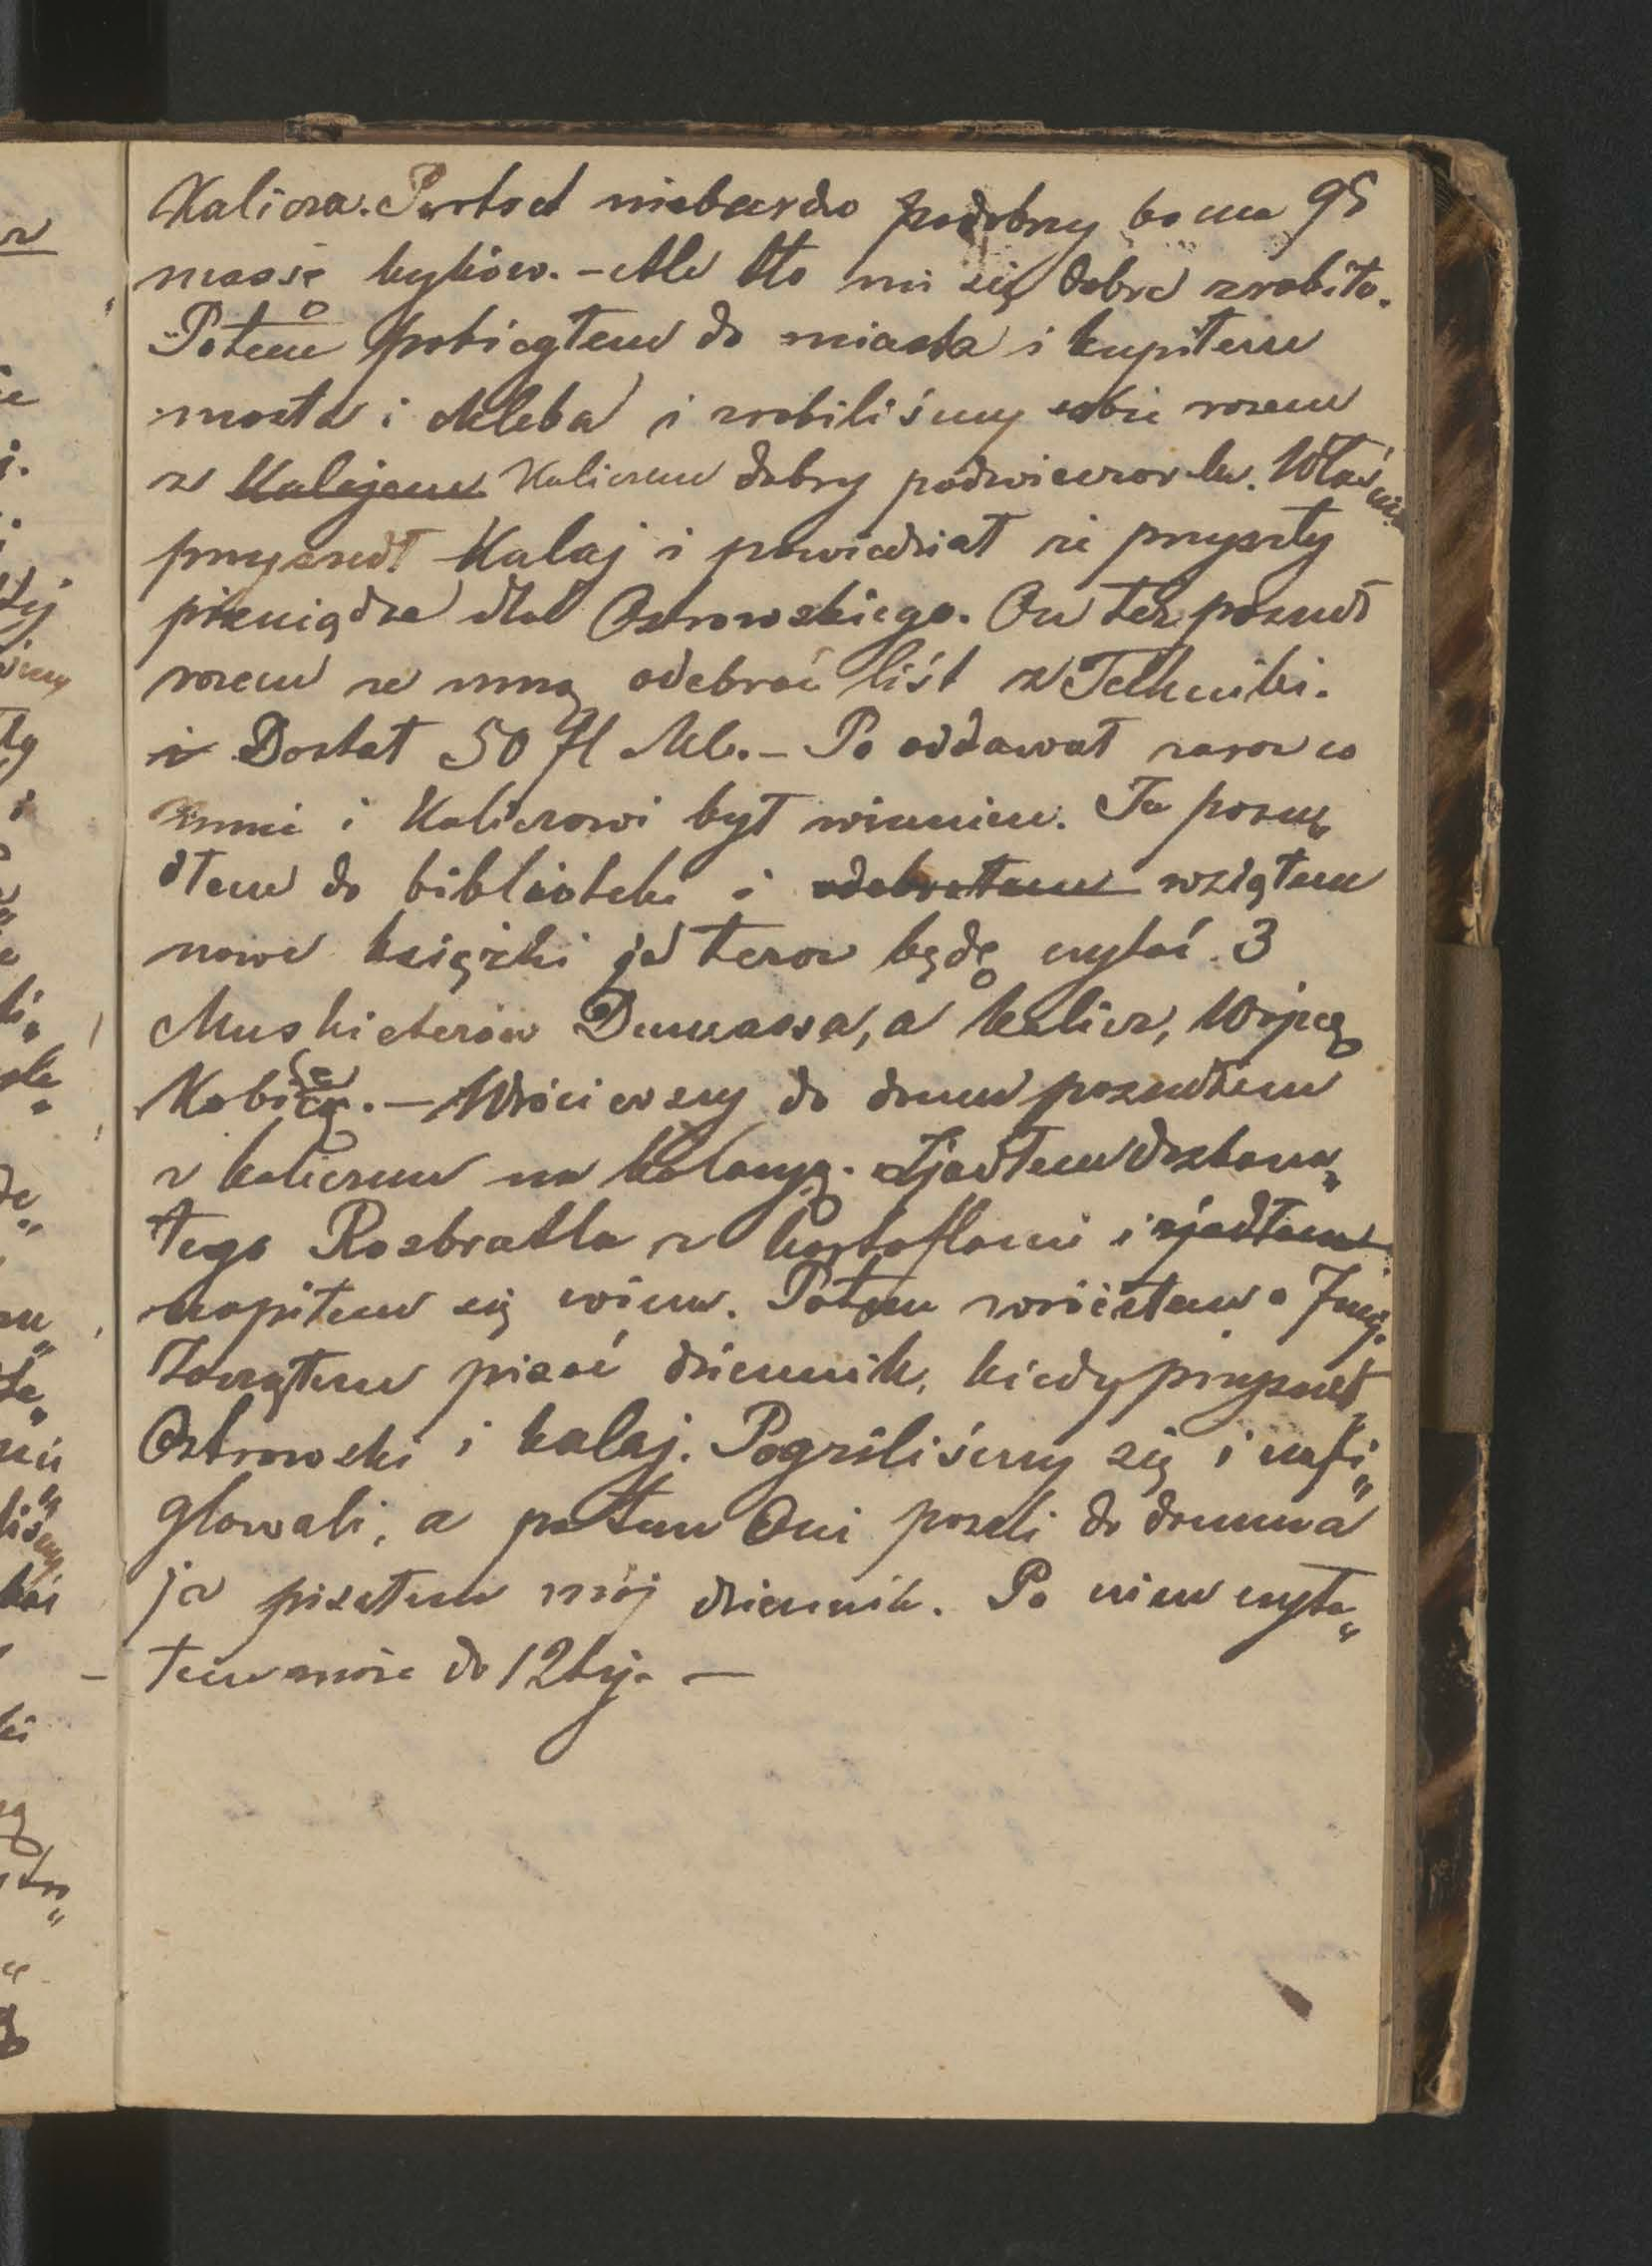 Kalicza. Portret niebardzo podobny bo ma 95
massę byków. – Ale tło mi się dobre zrobiło.
Potem pobiegłem do miasta i kupiłem
masła i chleba i zrobiliśmy sobie razem
z Kalajem Kaliczem dobry podwieczorek. Właśnie
przyszedł Kalaj i powiedział że przyszły
pieniądze dla Ostrowskiego. On też poszedł
razem ze mną odebrać list z Techniki.
i Dostał 50 fl Mk. – Po oddawał zaraz co
mnie i Kaliczowi był winnien. Ja posze„
dłem do biblioteki i odebrałem wziąłem
nowe książki ja teraz będę czytać 3
Muskieterów Dumassa, a Kalicz, Wojnę
Kobiéą. – Wróciwszy do domu poszedłem
z Kaliczem na kolację. Zjadłem
tego Rozbratla z kartoflami i zjadłem
napiłem się wina. Potem wróciłem o 7mej.
Zacząłem pisać dziennik, kiedy przyszedł
Ostrowski i Kalaj. Pogrzliśmy się i nafi„
glowali, a potem Oni poszli do domu a
ja pisałem mój dziennik. Po niem czyta„
łem może do 12tej. —